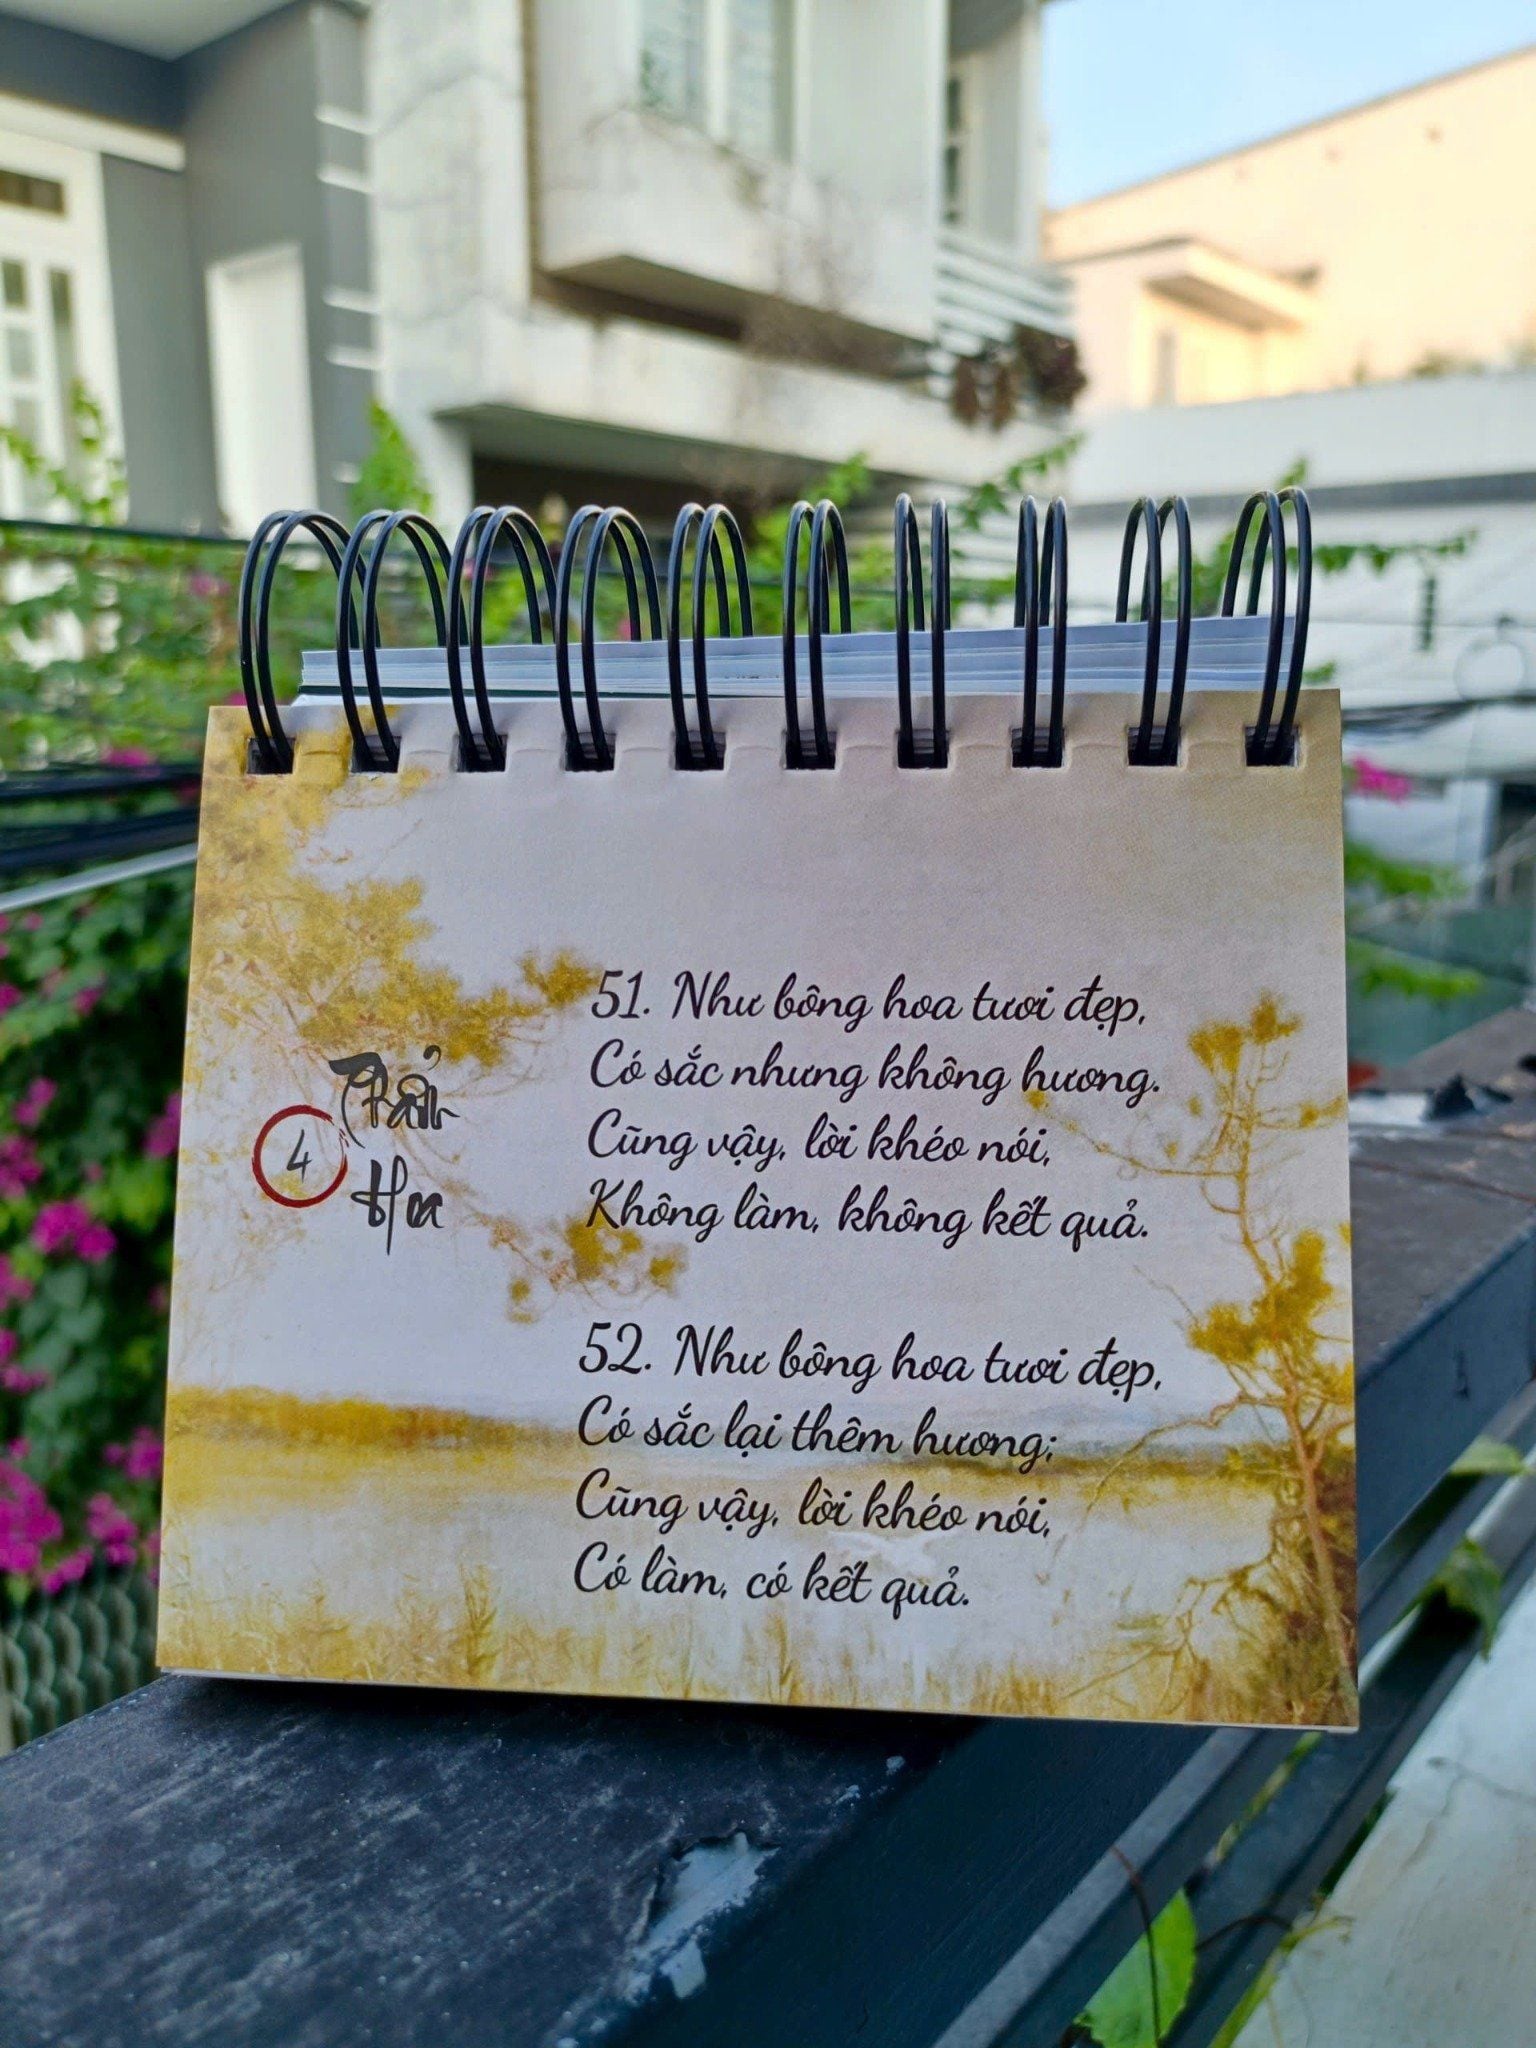 4
Phẩm
Hoa
51. Như bông hoa tươi đẹp,
Có sắc nhưng không hương.
Cũng vậy, lời khéo nói,
Không làm, không kết quả.
52. Như bông hoa tươi đẹp,
Có sắc lại thêm hương;
Cũng vậy, lời khéo nói,
Có làm, có kết quả.